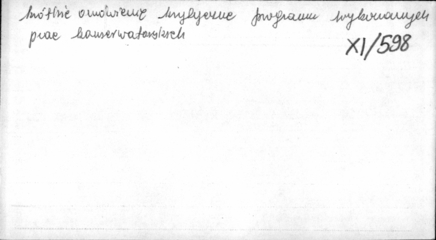 krótkie omówienie krytyczne programu wykonanych
prac konserwatorskich
XI/598